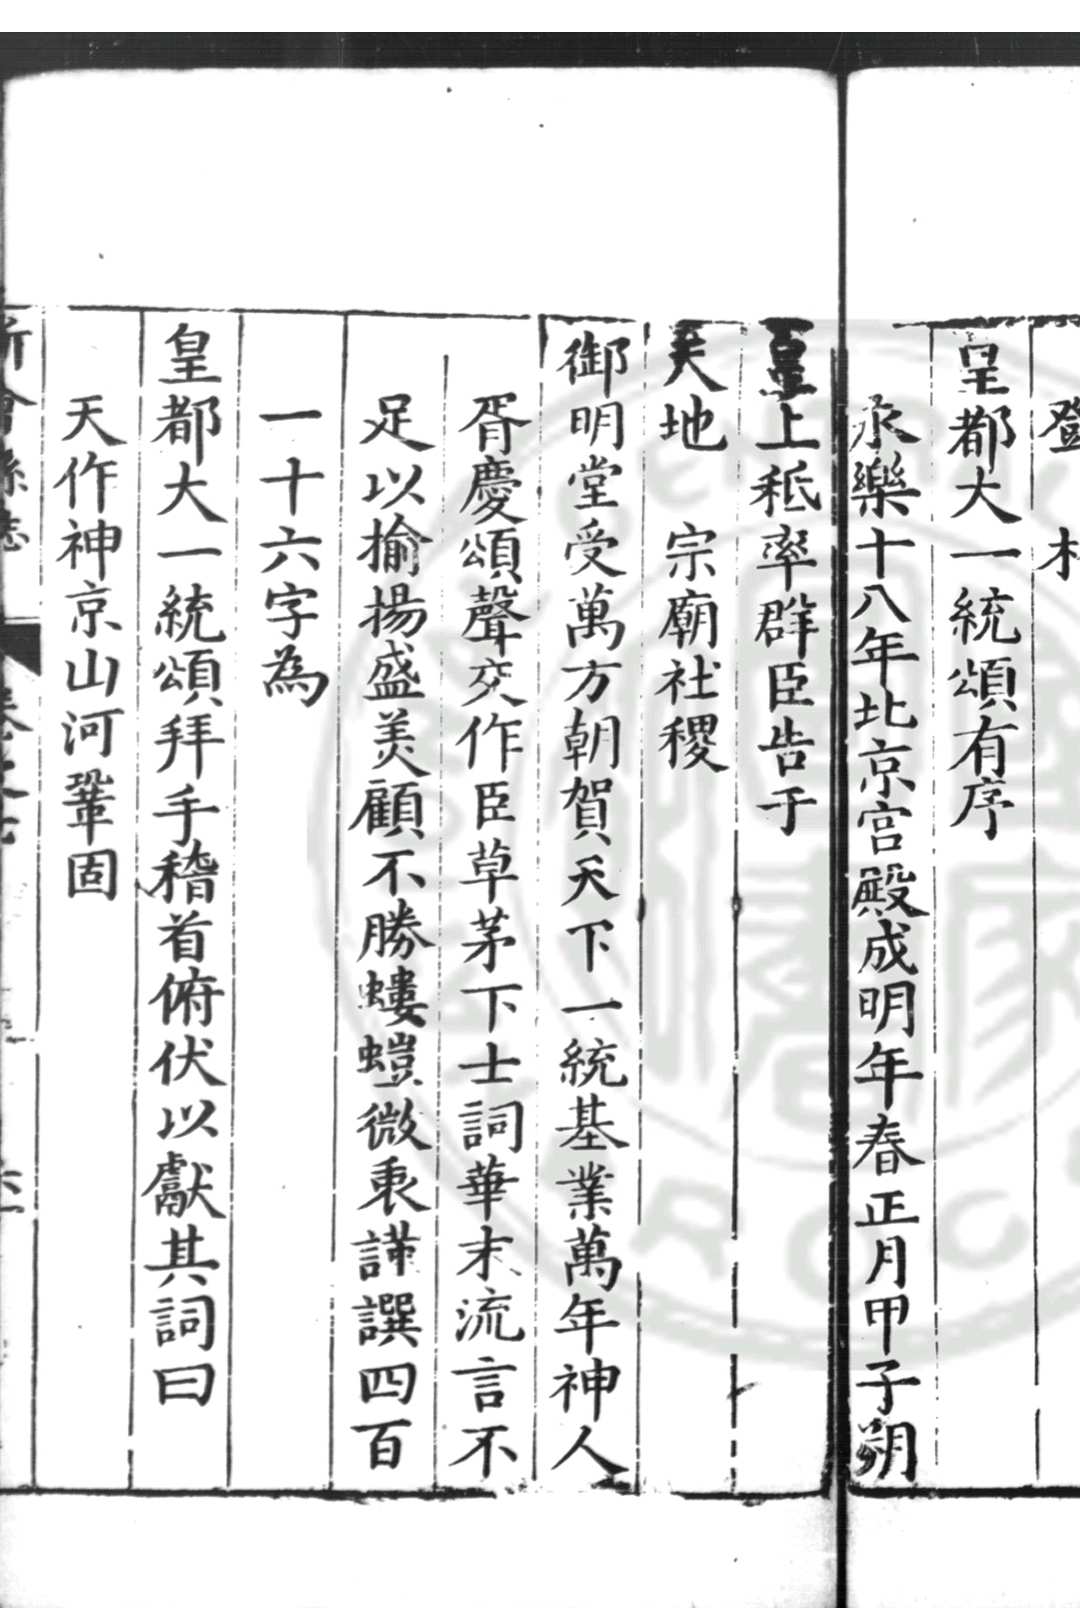 登
皇都大一統頌有序
永樂十八年北京宮殿成明年春正月甲子朔
皇上秪率群臣告于
天地　宗廟社稷
御明堂受萬方朝賀天下一統基業萬年神人
胥慶頌聲交作臣草茅下士詞華末流言不
足以揄揚盛美顧不勝螻螘微衷謹譔四百
一十六字為
皇都大一統頌拜手稽首俯伏以獻其詞曰
天作神京山河鞏固
新會縣志